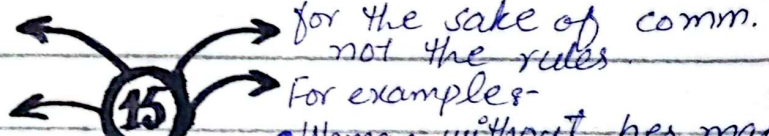 for the sake of comm.
not the rules.
15
For examples-
without her